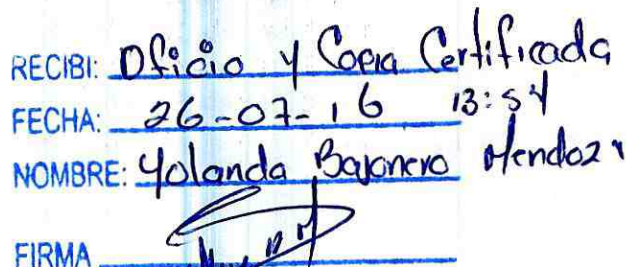 RECIBI: Oficio y Copia Certificada
FECHA: 26-07-16 13:54
NOMBRE: Yolanda Bayonero Mendoza
FIRMA